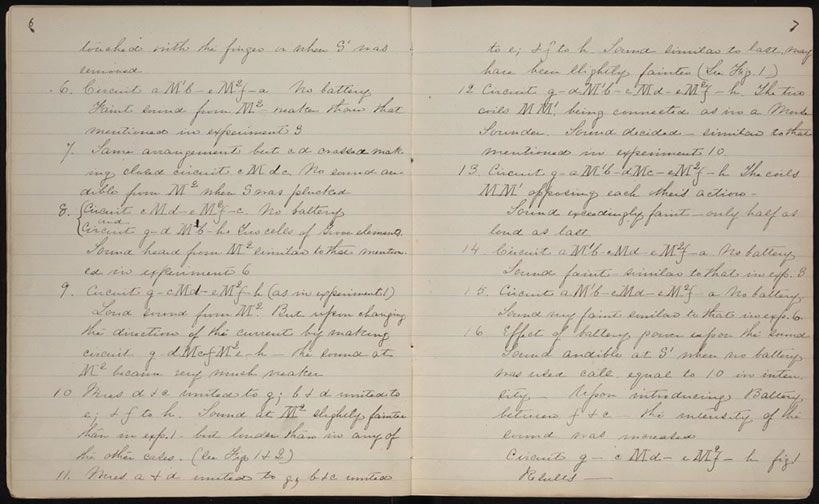 6
touched with the finger or when S' was
removed.
6. Circuit a M'b - eM²f - a No battery
Faint sound from M² - weaker than that
mentioned in experiment 3
7. Same arrangement but c d crossed mak-
ing closed circuit c M d c. No sound au-
dible from M² when S was plucked
8. Circuit c M d - e M²f - c. No battery
and
Circuit g - d M'b - h. Two cells of element.
Sound heard from M² similar to that mention-
ed in experiment 6
9. Circuit g - c M d - e M²f - h (as in experiment 1)
Loud sound from M². But upon changing
the direction of the current by making
circuit g - d M c f M²e - h - the sound at
M² became very much weaker
10. Wires d & c united to g; b & d united to
e; & f to h. Sound at M² slightly fainter
than in exp. 1. but louder than in any of
the other cases. (See Figs 1 & 2)
11. Wires a & d united to g; b & c united
7
to e; & f to h. Sound similar to last. may
have been slightly fainter (See Fig. 1)
12 Circuit g - d M'b - c M d - e M²f - h. The two
coils M M', being connected as in a Morse
Sounder. Sound decided - similar to that
mentioned in experiment 10.
13. Circuit g - a M'b - d M c - e M²f - h The coils
M M' opposing each other's action -
Sound exceedingly faint - only half as
loud as last
14. Circuit a M'b - c M d - e M²f - a No battery
Sound faint similar to that in exp. 3
15. Circuit a M'b - c M d - e M²f - a No battery
Sound very faint similar to that in exp. 6
16. Effect of battery power upon the sound
Sound audible at S' when no battery
was used call equal to 10 in inten-
sity - Upon introducing Battery
between f & c the intensity of the
sound was increased
Circuit g - c M d - e M²f - h fig 1
Results -